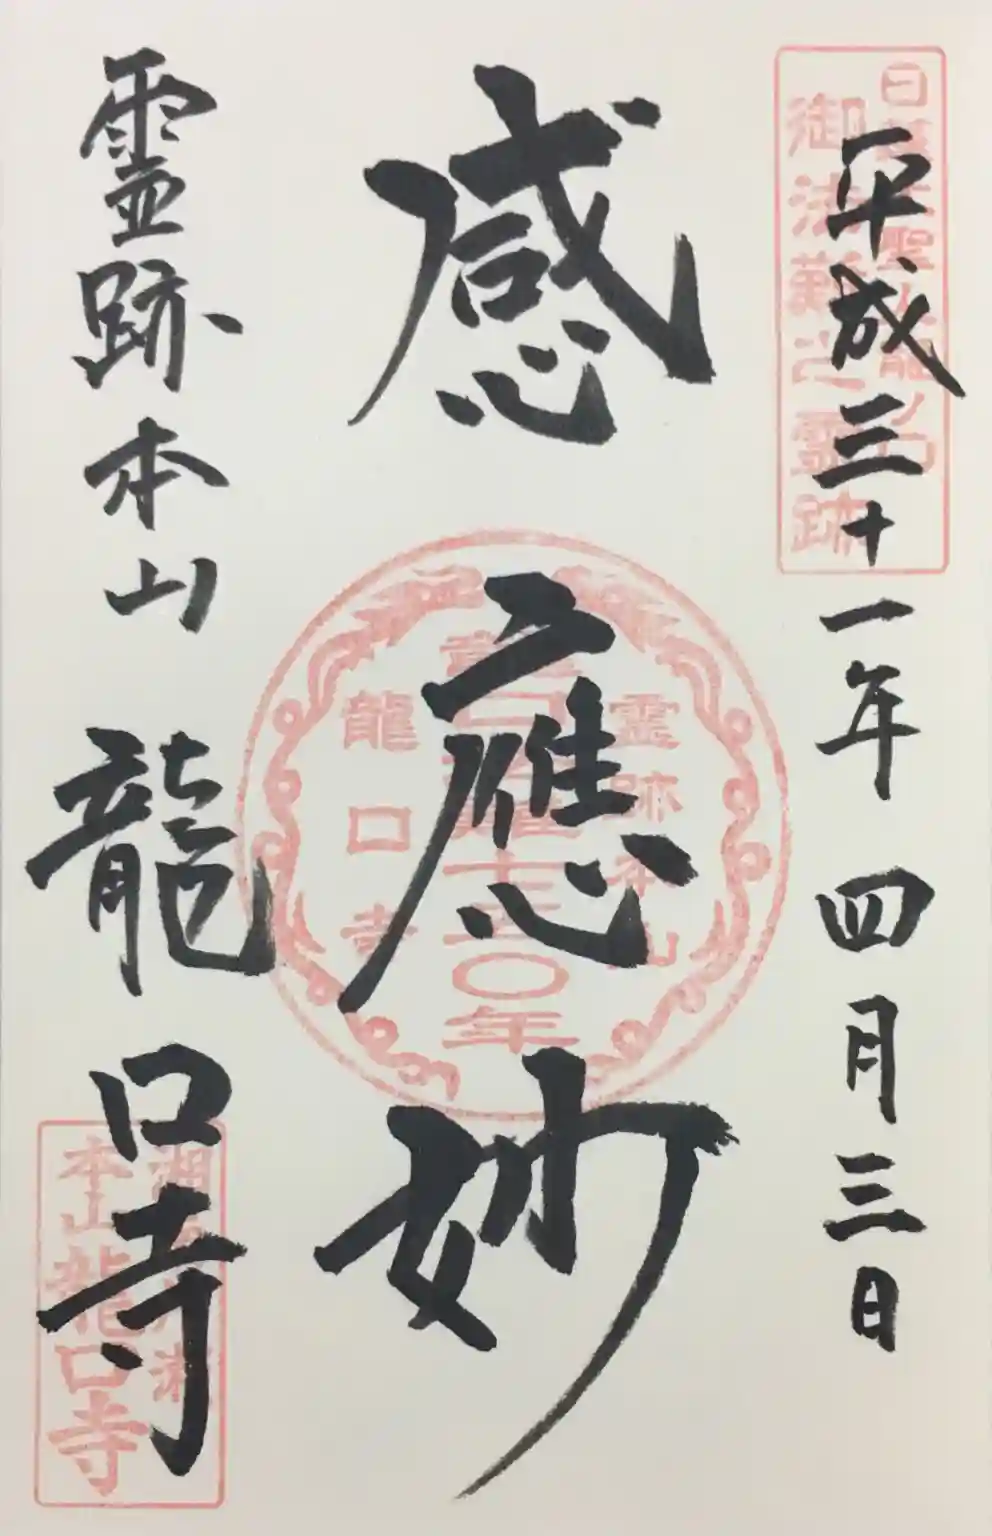 日蓮大聖人龍ノ口
御法難之霊跡
平成三十一年四月三日
感應妙
霊跡本山
龍口法難七五〇年
龍口寺
霊跡本山 龍口寺
本山龍口寺